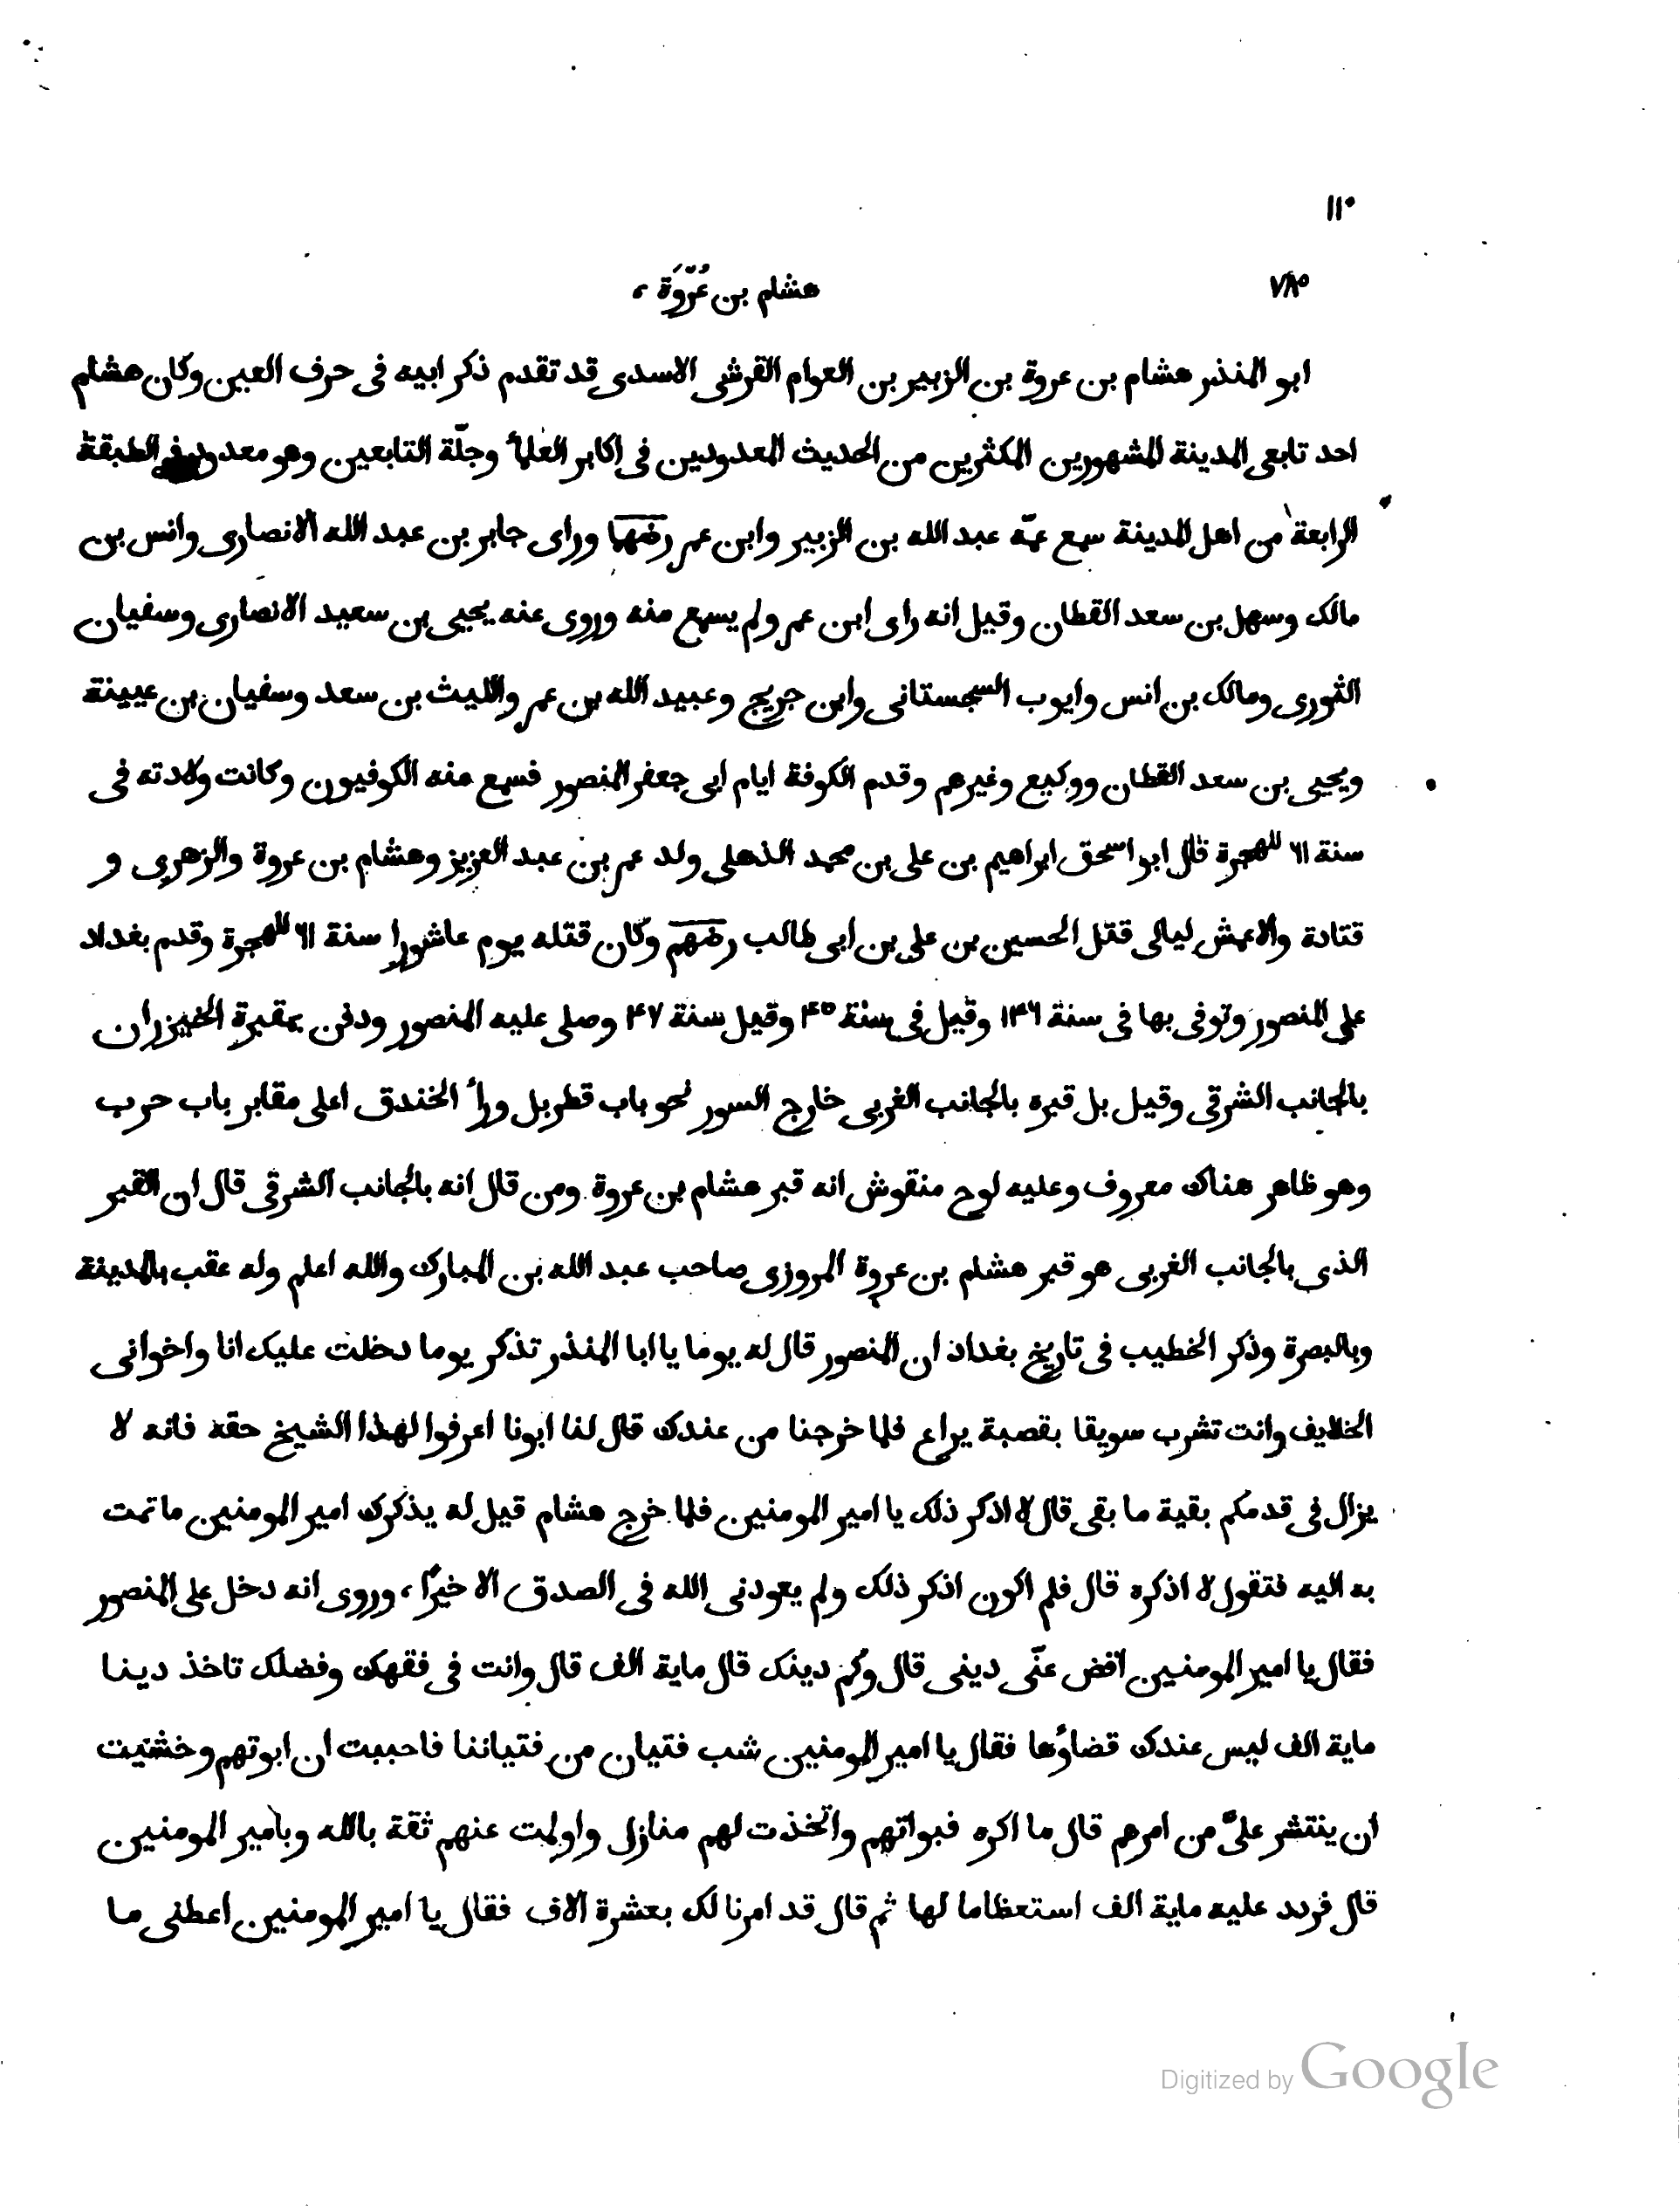 ١١٠
٧٨٥ هشام بن عُرْوَة ،
ابو المنذر هشام بن عروة بن الزبير بن العوام القرشى الاسدى قد تقدم ذكر ابيه فى حرف العين وكان هشام
احد تابعى المدينة المشهورين المكثرين من الحديث المعدودين فى اكابر العلمأ وجلّة التابعين وهو معدود فى الطبقة
الرابعة من اهل المدينة سمع عمّه عبد الله بن الزبير وابن عمر رضهما وراى جابر بن عبد الله الانصارى وانس بن
مالك وسهل بن سعد القطان وقيل انه راى ابن عمر ولم يسمع منه وروى عنه يحيى بن سعيد الانصارى وسفيان
الثورى ومالك بن انس وايوب السجستانى وابن جريج وعبيد الله بن عمر والليث بن سعد وسفيان بن عيينة
ويحيى بن سعد القطان ووكيع وغيرهم وقدم الكوفة ايام ابى جعفر المنصور فسمع منه الكوفيون وكانت ولادته فى
سنة ٦١ للهجرة قال ابو اسحق ابراهيم بن على بن محمد الذهلى ولد عمر بن عبد العزيز وهشام بن عروة والزهرى و
قتادة والاعمش ليالى قتل الحسين بن على بن ابى طالب رضهم وكان قتله يوم عاشورا سنة ٦١ للهجرة وقدم بغداد
على المنصور وتوفى بها فى سنة ١٤٦ وقيل فى سنة ٤٥ وقيل سنة ٤٧ وصلى عليه المنصور ودفن بمقبرة الخيزران
بالجانب الشرقى وقيل بل قبره بالجانب الغربى خارج السور نحو باب قطربل ورأ الخندق اعلى مقابر باب حرب
وهو ظاهر هناك معروف وعليه لوح منقوش انه قبر هشام بن عروة ومن قال انه بالجانب الشرقى قال ان القبر
الذى بالجانب الغربى هو قبر هشام بن عروة المروزى صاحب عبد الله بن المبارك والله اعلم وله عقب بالمدينة
وبالبصرة وذكر الخطيب فى تاريخ بغداد ان المنصور قال له يوما يا ابا المنذر تذكر يوما دخلت عليك انا واخوانى
الخلايف وانت تشرب سويقا بقصبة يراع فلما خرجنا من عندك قال لنا ابونا اعرفوا لهذا الشيخ حقه فانه لا
يزال فى قدمكم بقية ما بقى قال لا اذكر ذلك يا امير المومنين فلما خرج هشام قيل له يذكرك امير المومنين ما تمت
به اليه فتقول لا اذكره قال فلم اكون اذكر ذلك ولم يعودنى الله فى الصدق الا خيرًا ، وروى انه دخل على المنصور
فقال يا امير المومنين اقض عنّى دينى قال وكم دينك قال ماية الف قال وانت فى فقهك وفضلك تاخذ دينا
ماية الف ليس عندك قضاؤها فقال يا امير المومنين شب فتيان من فتياننا فاحببت ان ابوتهم وخشيت
ان ينتشر علىّ من امرهم قال ما اكره فبواتهم واتخذت لهم منازل واولمت عنهم ثقة بالله وبامير المومنين
قال فردد عليه ماية الف استعظاما لها ثم قال قد امرنا لك بعشرة الاف فقال يا امير المومنين اعطنى ما
Digitized by Google